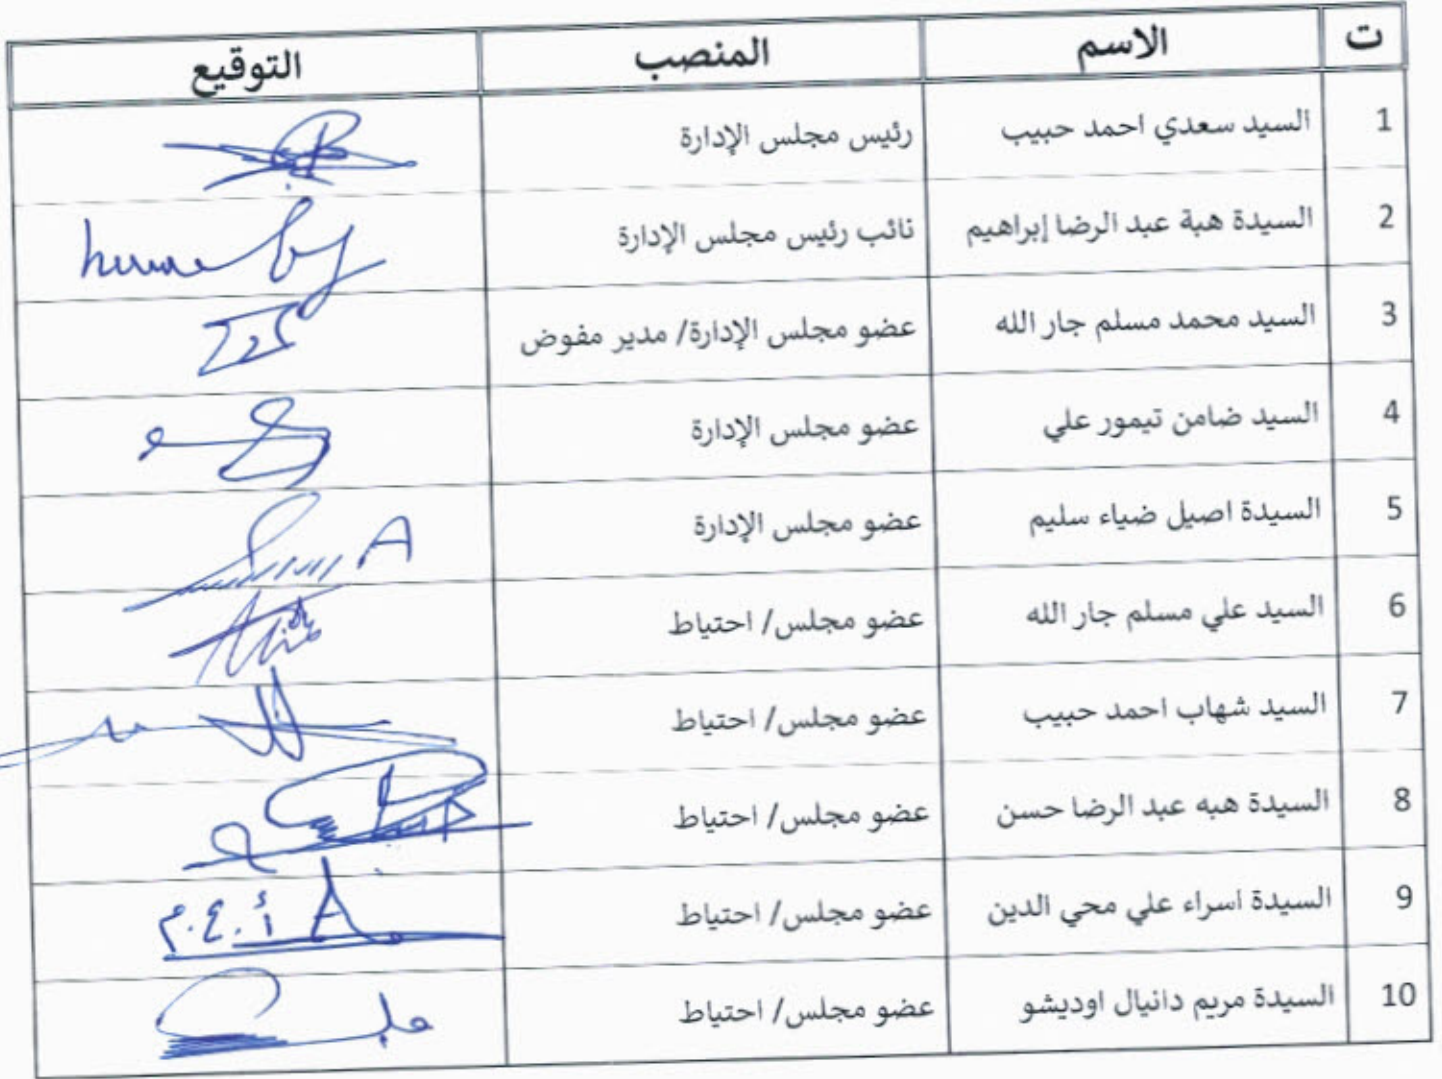 ت الاسم المنصب التوقيع
1 السيد سعدي احمد حبيب رئيس مجلس الإدارة
2 السيدة هبة عبد الرضا إبراهيم نائب رئيس مجلس الإدارة
3 السيد محمد مسلم جار الله عضو مجلس الإدارة/ مدير مفوض
4 السيد ضامن تيمور علي عضو مجلس الإدارة
5 السيدة اصيل ضياء سليم عضو مجلس الإدارة A
6 السيد علي مسلم جار الله عضو مجلس/ احتياط
7 السيد شهاب احمد حبيب عضو مجلس/ احتياط
8 السيدة هبه عبد الرضا حسن عضو مجلس/ احتياط
9 السيدة اسراء علي محي الدين عضو مجلس/ احتياط A أ.ع.م
10 السيدة مريم دانيال اوديشو عضو مجلس/ احتياط